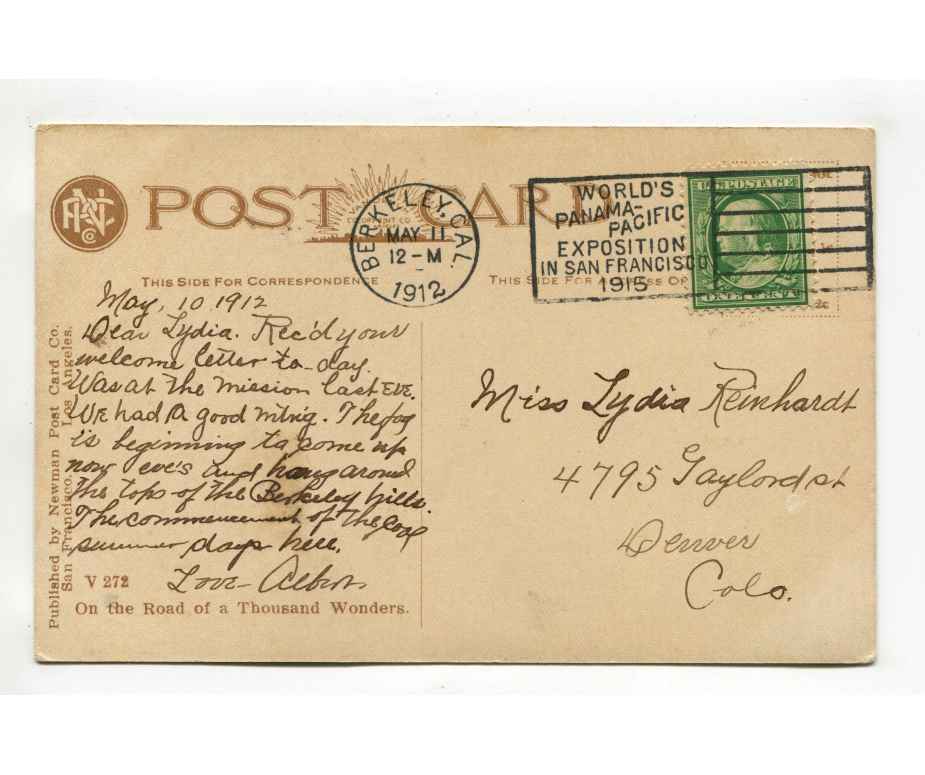 POST CARD
BERKELEY, CAL.
MAY 11
12-M
1912
WORLD'S
PANAMA-
PACIFIC
EXPOSITION
IN SAN FRANCISCO
1915
U.S. POSTAGE
THIS SIDE FOR CORRESPONDENCE
THIS SIDE FOR
2c
May, 10 1912
Dear Lydia. Rec'd your
welcome letter to-day.
Was at the mission last EVE.
WE had a good mtng. The fog
is beginning to come up
now eve's and hang around
the tops of the Berkeley hills.
The commencement of the cool
summer days here.
Love- Albert
Miss Lydia Reinhardt
4795 Gaylord st
Denver
Colo.
Published by Newman Post Card Co.
San Francisco. Los Angeles.
V 272
On the Road of a Thousand Wonders.